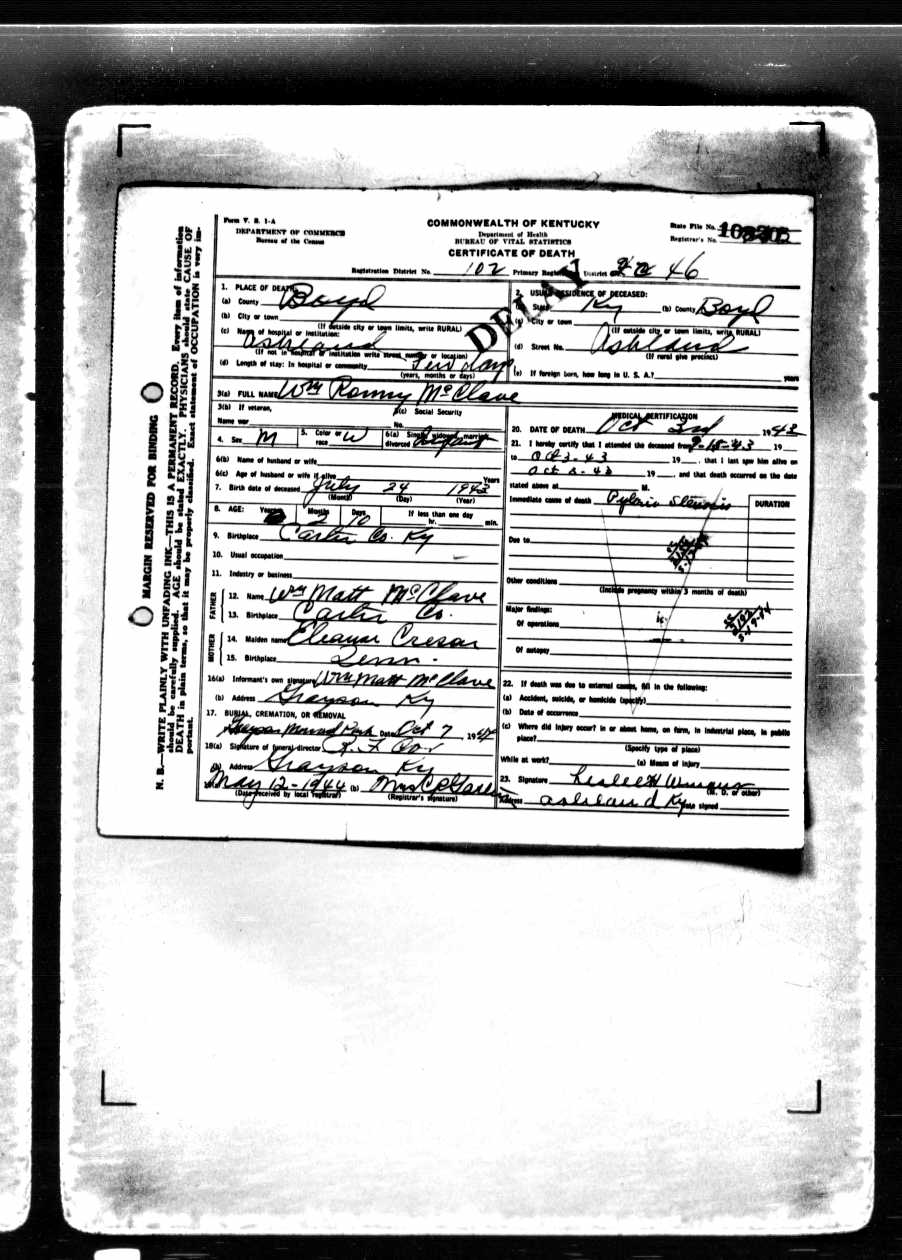 Form V. S. 1-A
DEPARTMENT OF COMMERCE
Bureau of the Census
COMMONWEALTH OF KENTUCKY
Department of Health
BUREAU OF VITAL STATISTICS
CERTIFICATE OF DEATH
State File No.
Registrar's No.
Registration District No. 102 Primary District 46
DELAY
1. PLACE OF DEATH
(a) County Boyd
(b) City or town
(If outside city or town limits, write RURAL)
(c) Name of hospital or institution:
Ashland
(If not in hospital or institution write street number or location)
(d) Length of stay: In hospital or community Few days
(years, months or days)
2. USUAL RESIDENCE OF DECEASED:
State Ky (b) County Boyd
(c) City or town
(If outside city or town limits, write RURAL)
(d) Street No. Ashland
(If rural give precinct)
(e) If foreign born, how long in U. S. A.? years
3(a) FULL NAME Wm Ronny McClave
3(b) If veteran,
Name war
3(c) Social Security
No.
4. Sex M 5. Color or race W 6(a) Single, widowed, married, divorced
6(b) Name of husband or wife
6(c) Age of husband or wife if alive Years
7. Birth date of deceased July 24 1943
(Month) (Day) (Year)
8. AGE: Years Months 2 Days 10 If less than one day
hr. min.
9. Birthplace Carter Co. Ky
10. Usual occupation
11. Industry or business
FATHER
12. Name Wm Matt McClave
13. Birthplace Carter Co.
MOTHER
14. Maiden name Eleanor
15. Birthplace
16(a) Informant's own signature Wm Matt McClave
(b) Address Grayson Ky
17. BURIAL, CREMATION, OR REMOVAL
Date Oct 7, 19
18(a) Signature of funeral director
(b) Address Grayson Ky
May 12-1944 (b) Mrs
(Date received by local registrar) (Registrar's signature)
MEDICAL CERTIFICATION
20. DATE OF DEATH Oct 3rd 1943
21. I hereby certify that I attended the deceased from 9-15-43 19
to Oct 3-43 19, that I last saw him alive on
Oct 43 19, and that death occurred on the date
stated above at M.
Immediate cause of death Pyloric Stenosis
DURATION
Due to
Other conditions
(Include pregnancy within 3 months of death)
Major findings:
Of operations
Of autopsy
22. If death was due to external causes, fill in the following:
(a) Accident, suicide, or homicide (specify)
(b) Date of occurrence
(c) Where did injury occur? in or about home, on farm, in industrial place, in public
place?
(Specify type of place)
While at work? (e) Means of injury
23. Signature
(M. D. or other)
Address Ashland Ky Date signed
MARGIN RESERVED FOR BINDING
N. B.—WRITE PLAINLY WITH UNFADING INK—THIS IS A PERMANENT RECORD. Every item of information
should be carefully supplied. AGE should be stated EXACTLY. PHYSICIANS should state CAUSE OF
DEATH in plain terms, so that it may be properly classified. Exact statement of OCCUPATION is very im-
portant.